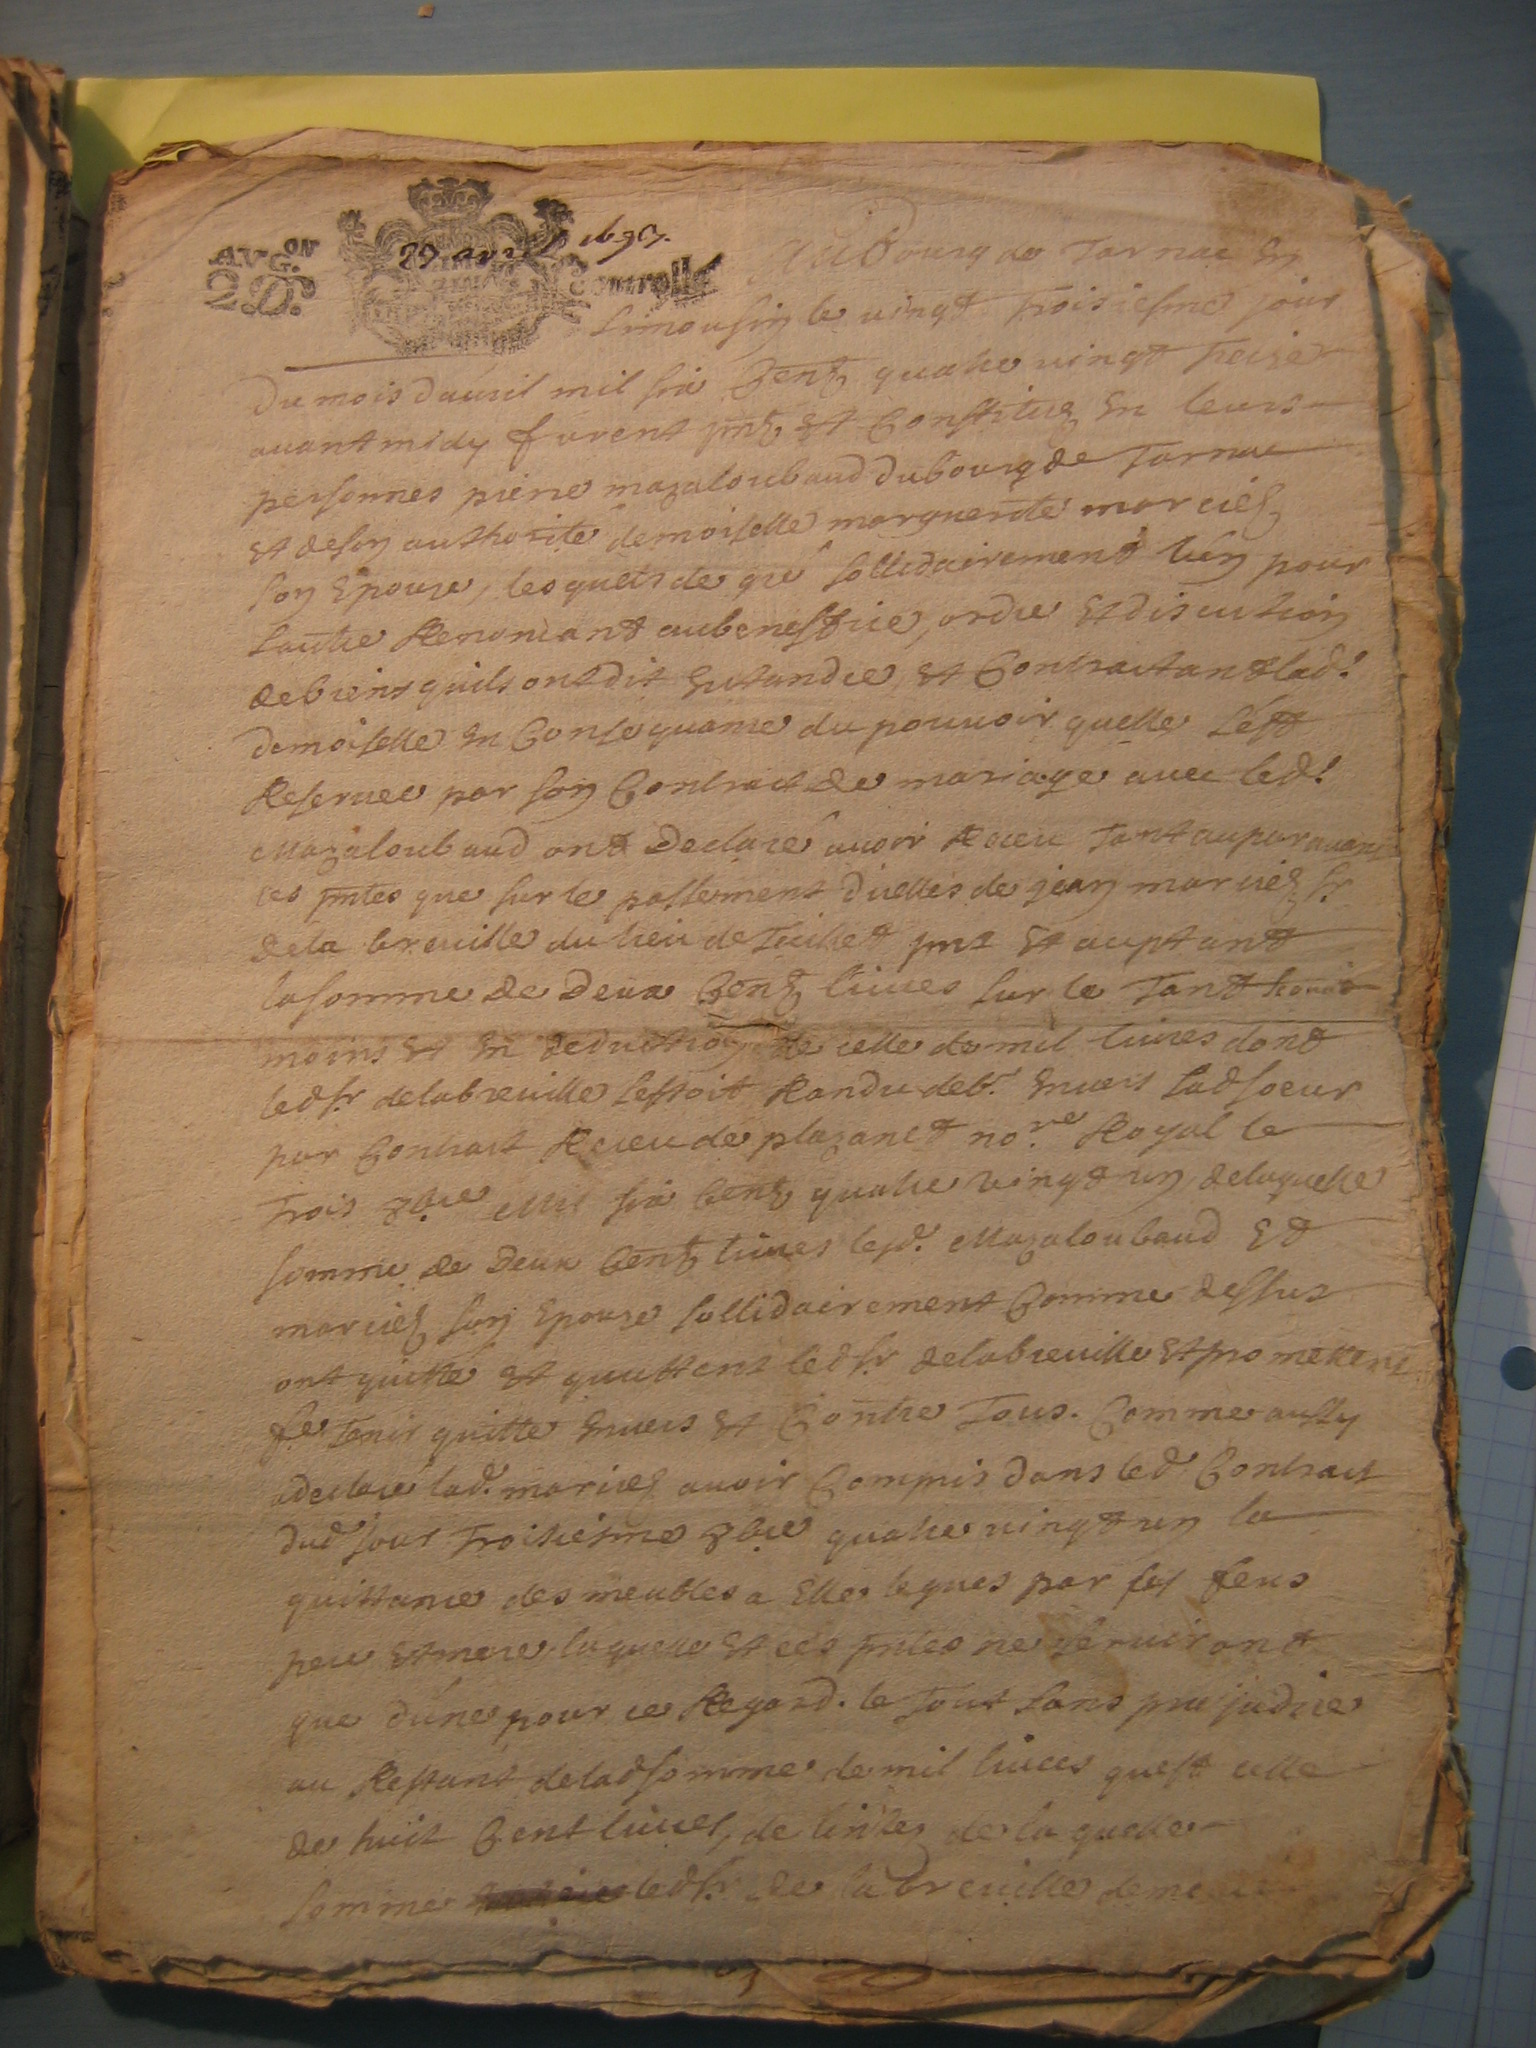 AVG.ON
2 D.
23 avril 1693.
Controlle
Au Bourg de Tarnac En
Limousin le vingt Troisiesme jour
Du mois d'avril mil six Centz quatre vingt treize
avant midy furent pntz Et Constitués En leurs
personnes pierre mazaloubaud du bourg de Tarnac
Et de son authorité demoiselle marguerite
son Epouze, lesquels de gré sollidairement l'un pour
lautre Renonciant au benefice, ordre Et discution
de biens quils ont dit Entandre, Et Contractant lad.
demoiselle En Consequance du pouvoir quelle sest
Reservee par son Contract de mariage avec led.
Mazaloubaud ont Declaré avoir Receu Tant auparavant
ces pntes que sur le passement d'icelles de jean sr.
de la breuille du lieu de pnt Et auptant
la somme de Deux Centz livres sur le Tant
moins Et En deduction de celle de mil livres dont
led sr delabreuille sestoit Randu debr. Envers sad soeur
par Contract Receu de plazanet no.re Royal le
Trois Mil six Centz quatre vingt un, delaquelle
somme de Deux Centz livres lesd. Mazaloubaud Et
son Epouze sollidairement Comme dessus
ont quitté Et quittent led sr. delabreuille Et promettent
le Tenir quitte Envers Et Contre Tous. Comme aussy
a declaré lad. avoir Compris dans led Contract
dud jour Troisiesme quatre vingt un la
quittance des meubles a Elle legués par ses feus
pere Et mere laquelle Et ces pntes ne serviront
que d'une pour ce Regard. le Tout sans prejudice
au Restant de lad somme de mil livres quest celle
de huit Cent livres, de de laquelle
somme led sr. de la breuille